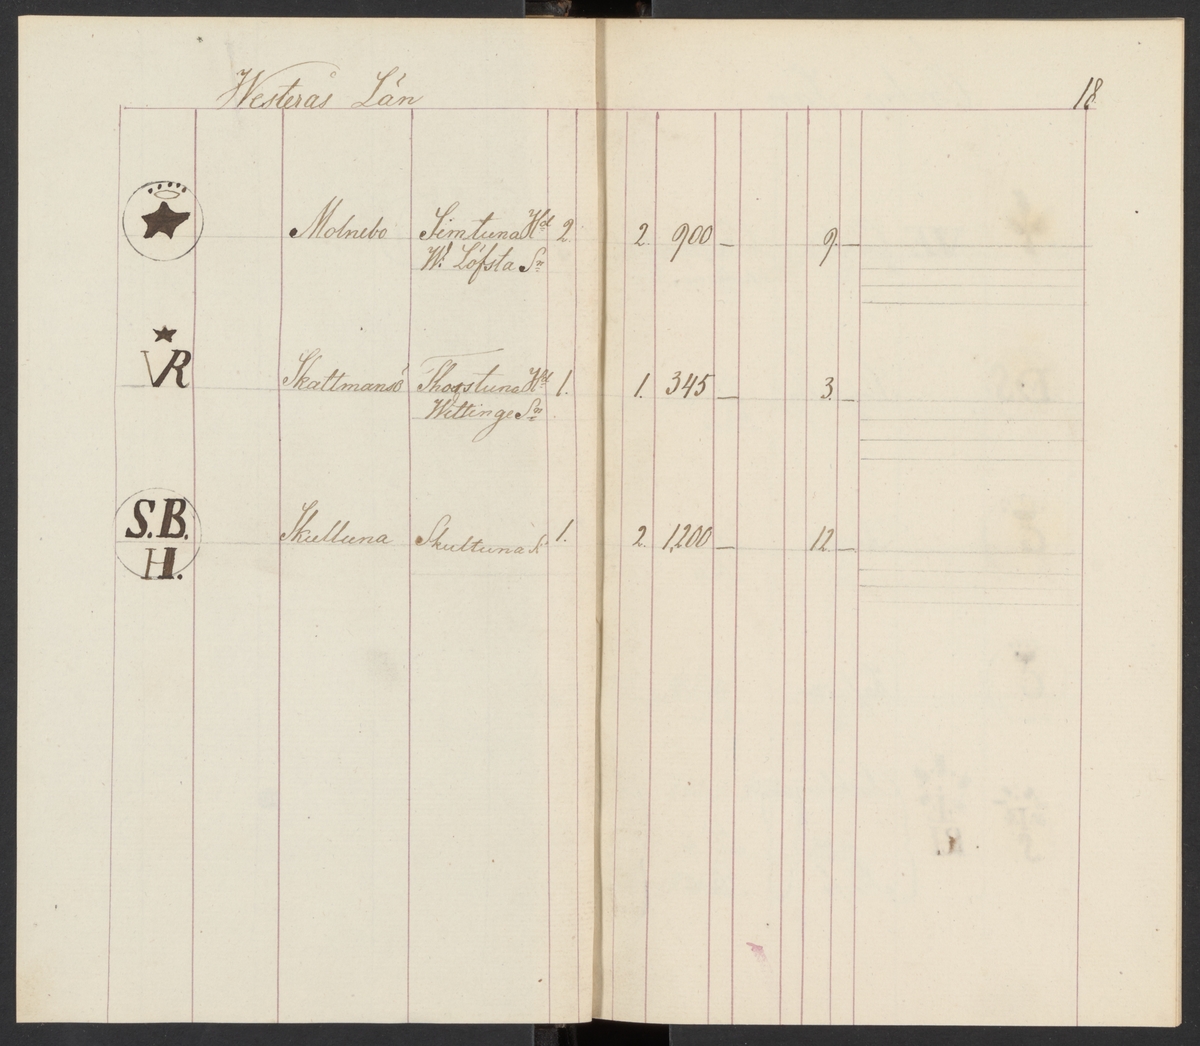 Westerås Län 18
Molnebo Simtuna Hd 2. 2. 900 _ 9. _
W. Löfsta Sn
VR
Skattmansö Thorstuna Hd 1. 1. 345 _ 3. _
Wittinge Sn
S.B.
H.
Skultuna Skultuna S. 1. 2. 1,200 _ 12. _